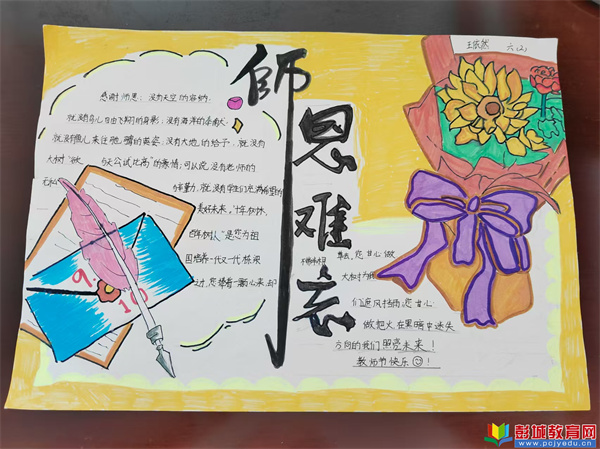 师恩难忘
王依然 六(2)
感谢师恩：没有天空的容纳，
就没有鸟儿自由飞翔的身影；没有海洋的奉献，
就没有鱼儿来往驰骋的英姿；没有大地的给予，就没有
大树“欲 与天公试比高”的豪情；可以说，没有老师的
辛勤，就没有学生们充满希望的
美好未来，“十年树木，
百年树人”是您为祖
国培养一代又一代栋梁
您捧着一颗心来，却
草去，您甘心做
大树为我
们遮风挡雨；您甘心
做炬火在黑暗中迷失
方向的我们照亮未来！
教师节快乐！
9.10
彭城教育网
www.pcjyedu.cn